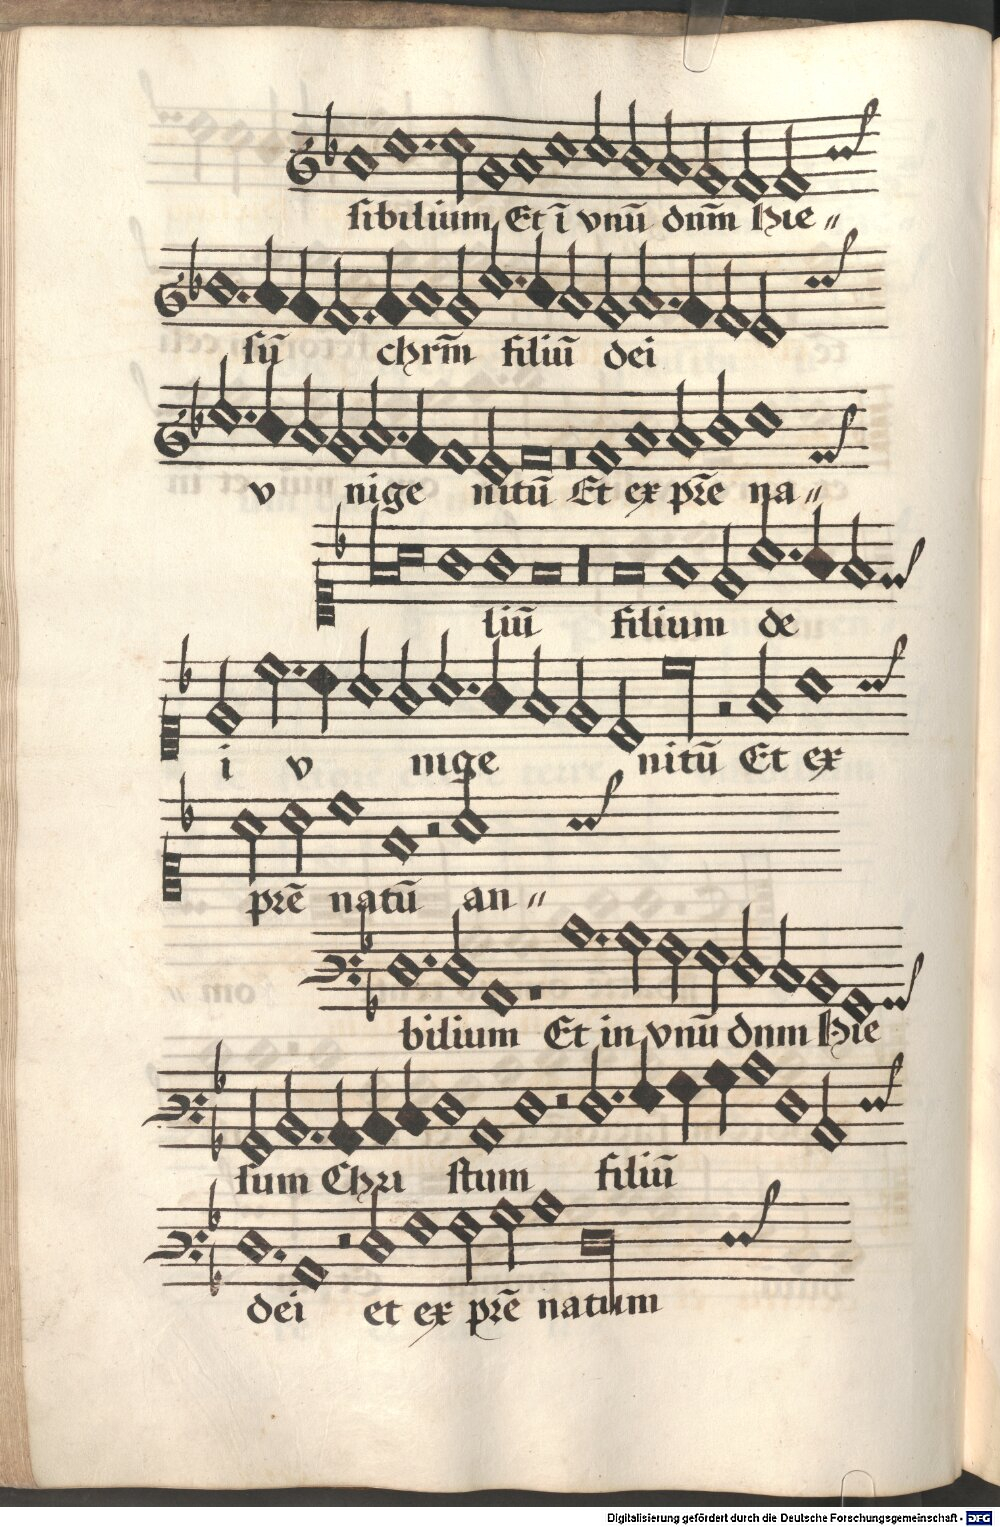 sibilium Et ī vnū dn̄m Hie〃
sū chrm̄ filiū dei
v nige nitū Et ex pr̄e na〃
liū filium de
i v nige nitū Et ex
pr̄e natū an〃
bilium Et in vnū dnm Hie
sum Chri stum filiū
dei et ex pr̄e natum
Digitalisierung gefördert durch die Deutsche Forschungsgemeinschaft - DFG